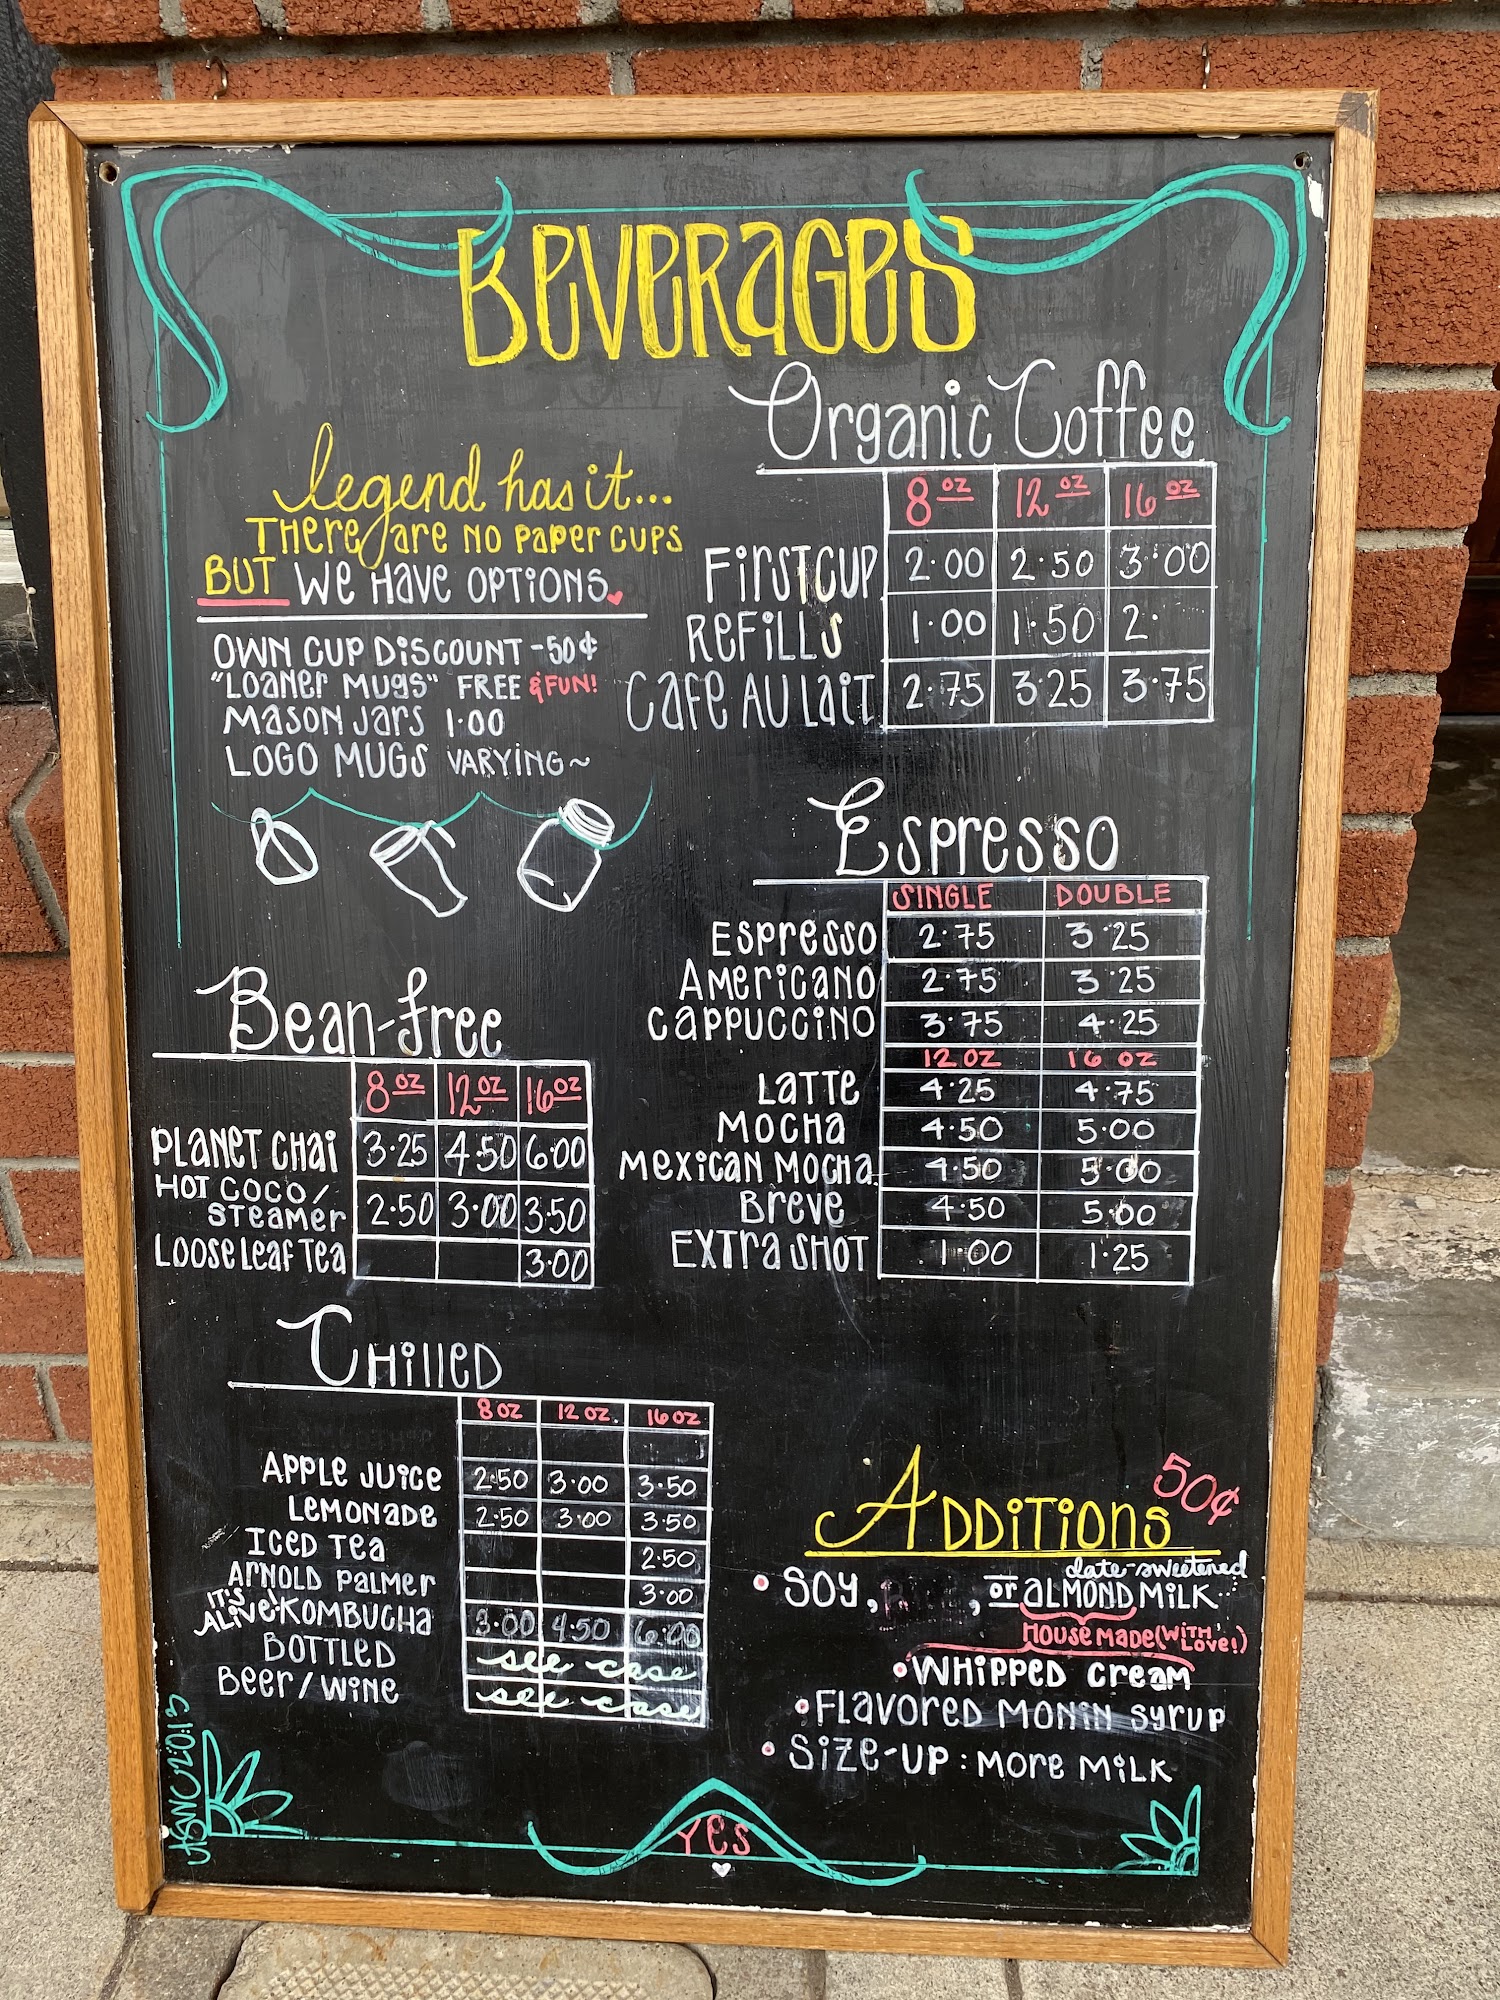 BEVERAGES
legend has it...
THERE are NO PAPER CUPS
BUT WE HAVE OPTIONS
OWN CUP DISCOUNT -50¢
"LOANER MUGS" FREE & FUN!
MASON JARS 1.00
LOGO MUGS VARYING~
Organic Coffee
8 oz 12 oz 16 oz
FIRST CUP 2.00 2.50 3.00
REFILLS 1.00 1.50 2.
CAFE AU LAIT 2.75 3.25 3.75
Espresso
SINGLE DOUBLE
ESPRESSO 2.75 3.25
AMERICANO 2.75 3.25
CAPPUCCINO 3.75 4.25
12 OZ 16 OZ
LATTE 4.25 4.75
MOCHA 4.50 5.00
MEXICAN MOCHA 4.50 5.00
BREVE 4.50 5.00
EXTRA SHOT 1.00 1.25
Bean-free
8 oz 12 oz 16 oz
PLANET CHAI 3.25 4.50 6.00
HOT COCO/
STEAMER 2.50 3.00 3.50
LOOSE LEAF TEA 3.00
CHILLED
8 OZ 12 OZ. 16 OZ
APPLE JUICE 2.50 3.00 3.50
LEMONADE 2.50 3.00 3.50
ICED TEA 2.50
ARNOLD PALMER 3.00
IT'S
ALIVE! KOMBUCHA 3.00 4.50 6.00
BOTTLED see case
BEER/WINE see case
ADDITIONS 50¢
date-sweetened
• SOY, , or ALMOND MILK
HOUSE MADE (WITH LOVE!)
• WHIPPED CREAM
• FLAVORED MONIN SYRUP
• SIZE-UP: MORE MILK
YES